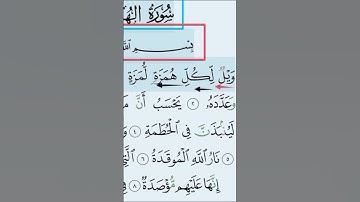 سُورَةُ الهُ
بِسْمِ ٱللَّهِ
وَيْلٌ لِّكُلِّ هُمَزَةٍ لُّمَزَةٍ
وَعَدَّدَهُۥ ٢ يَحْسَبُ أَنَّ
لَيُنۢبَذَنَّ فِي ٱلْحُطَمَةِ ٤
٥ نَارُ ٱللَّهِ ٱلْمُوقَدَةُ ٦ ٱلَّتِي
إِنَّهَا عَلَيْهِم مُّؤْصَدَةٌ ٨ فِي